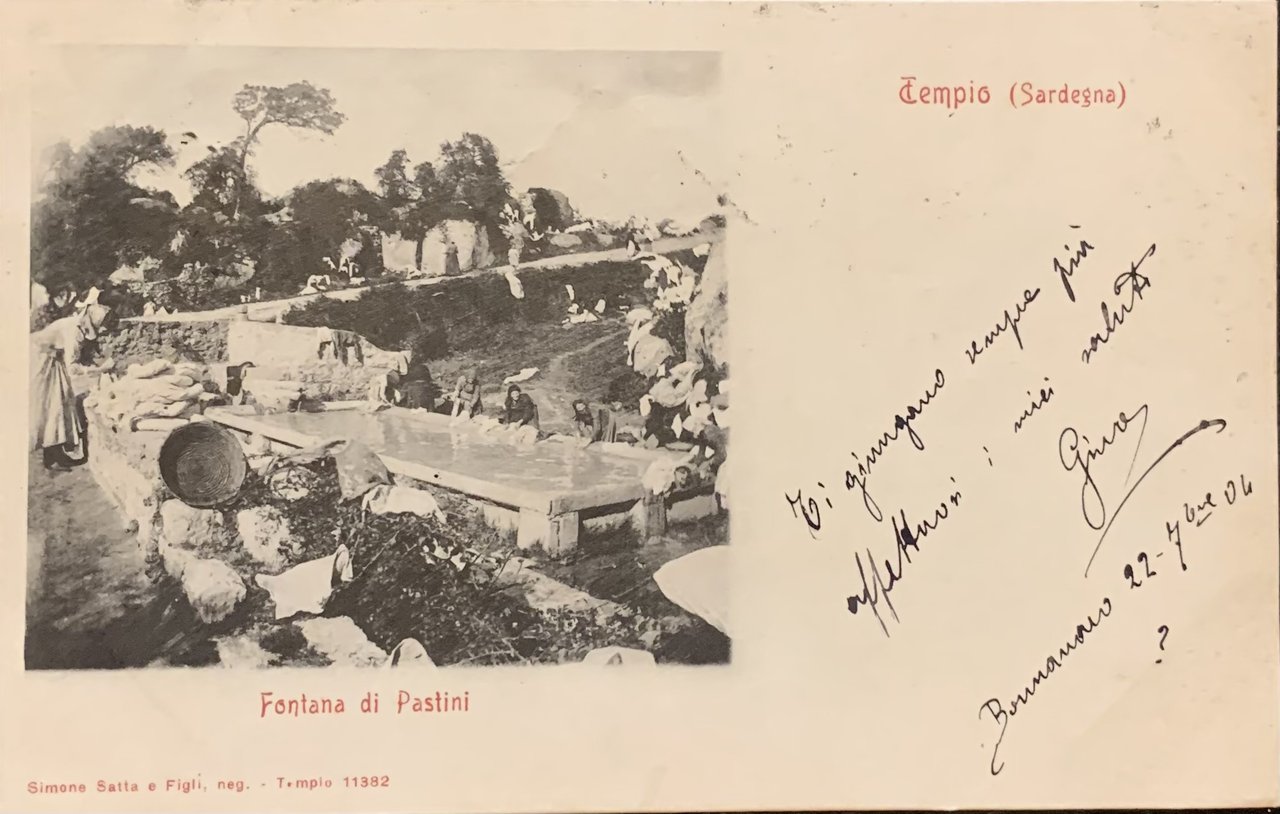 Tempio (Sardegna)
Ti giungano sempre più
affettuosi i miei saluti
Gino
Bonnanaro 22-7bre 04
?
Fontana di Pastini
Simone Satta e Figli, neg. - Tempio 11382